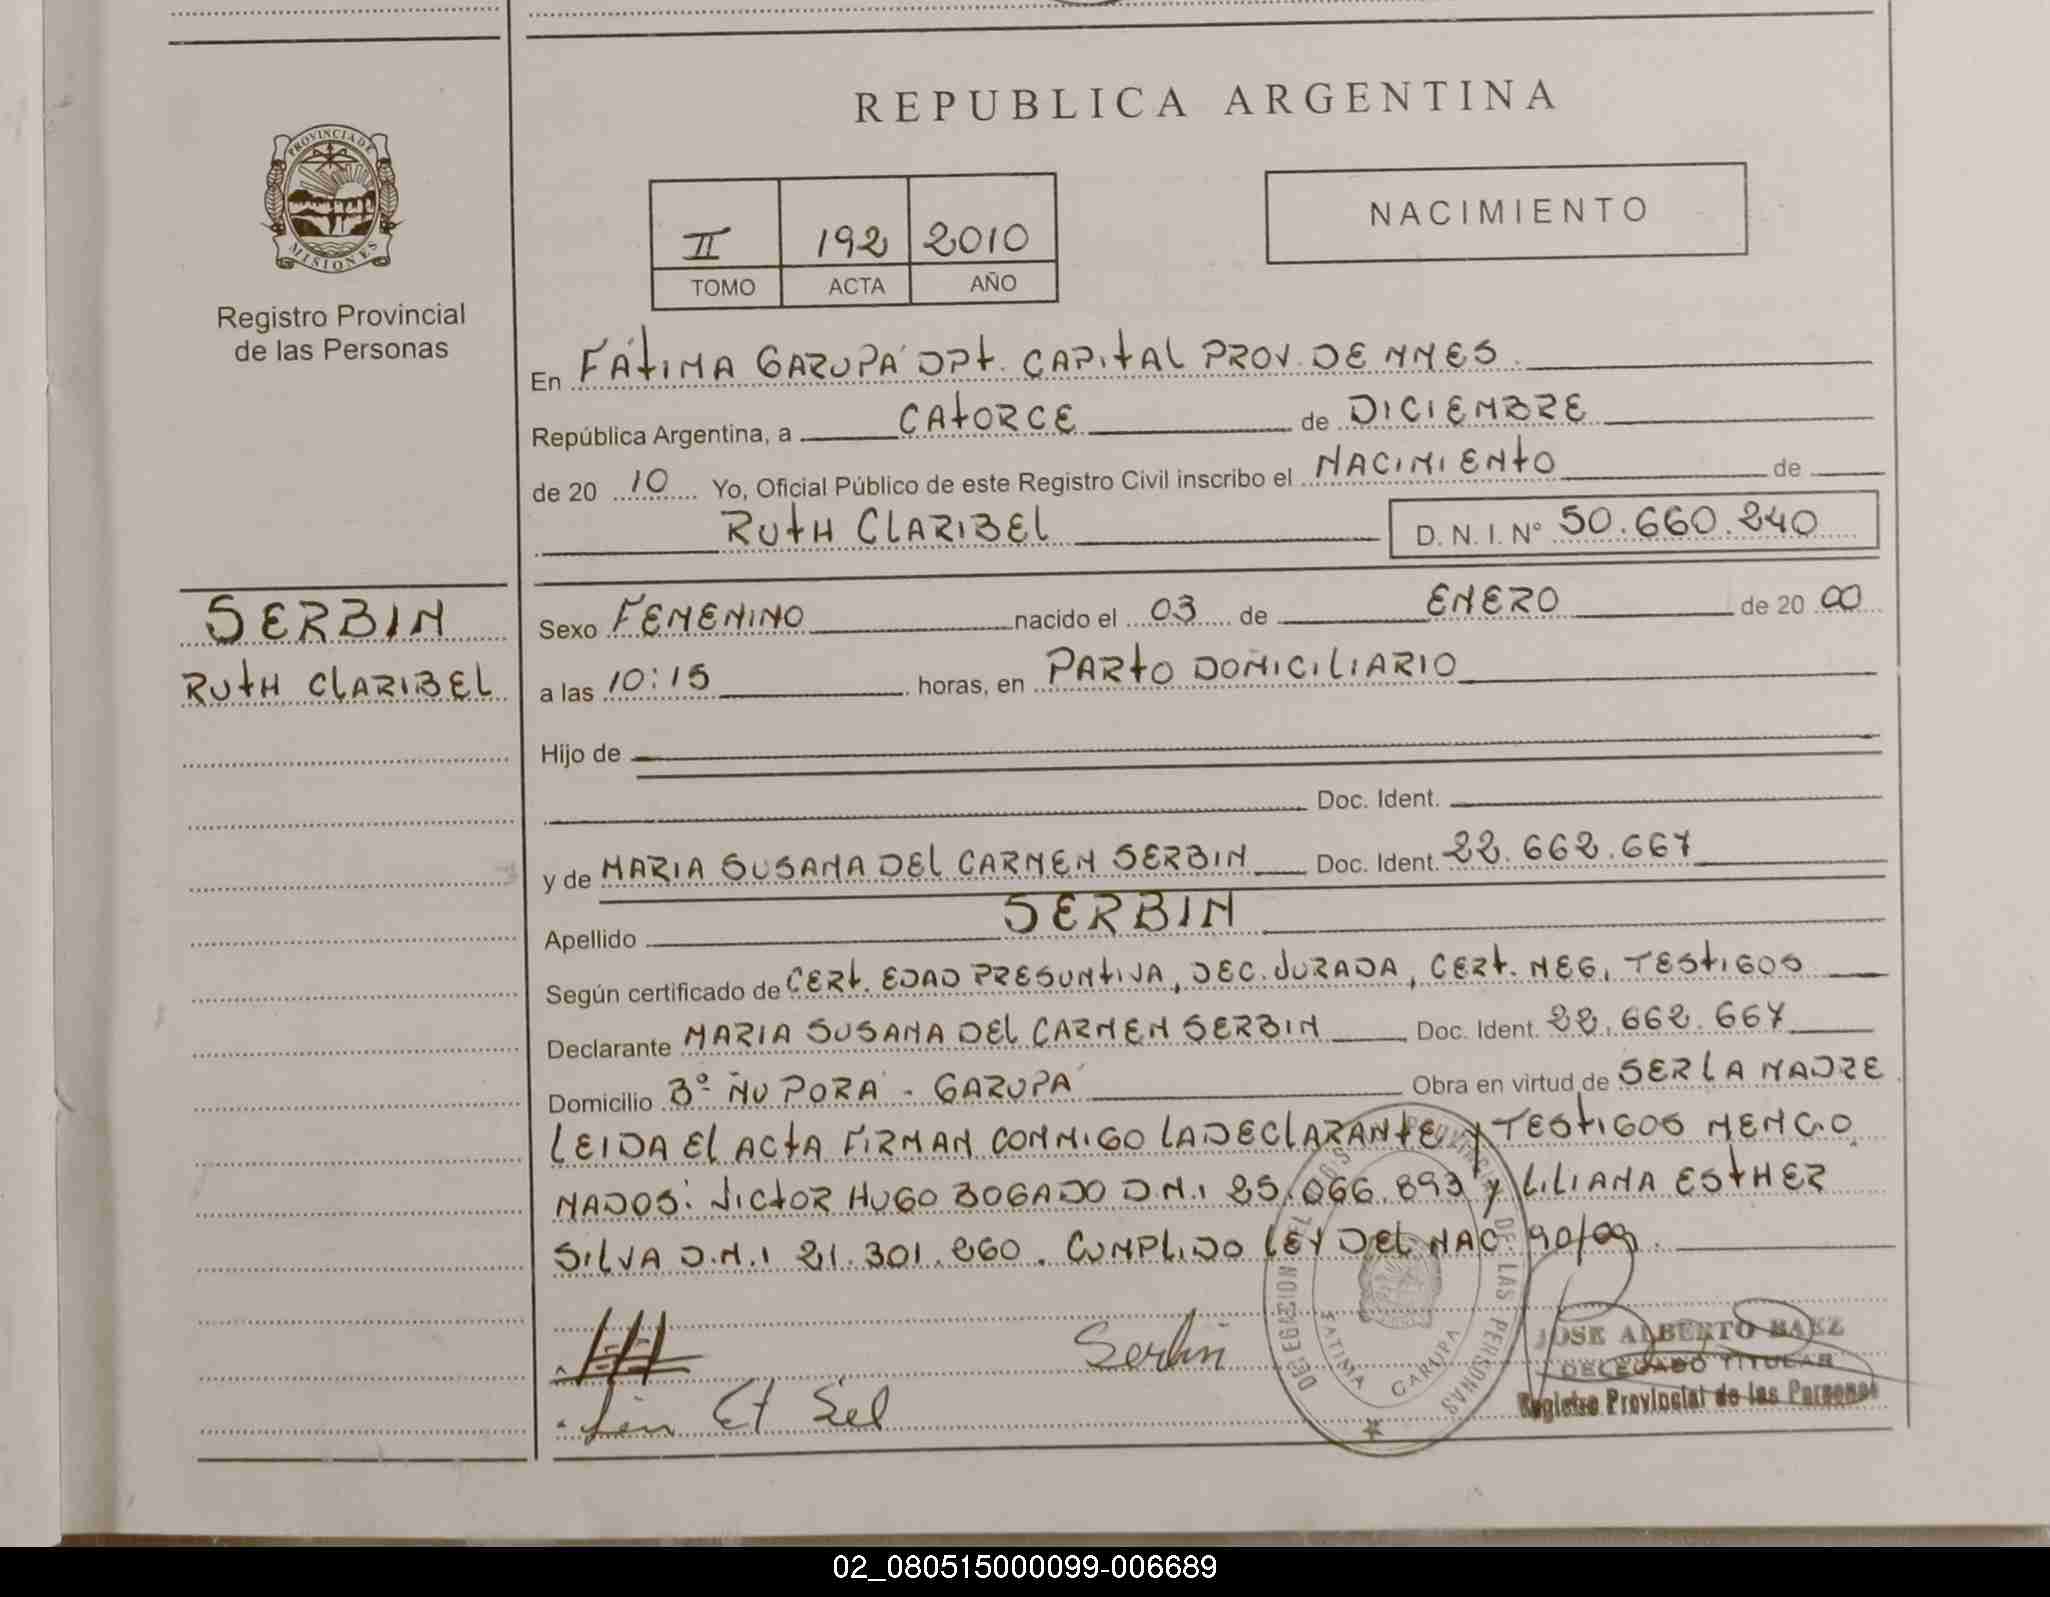 REPUBLICA ARGENTINA
PROVINCIA DE
MISIONES
Registro Provincial
de las Personas
II 192 2010
TOMO ACTA AÑO
NACIMIENTO
En FÁTIMA GARUPÁ DPT. CAPITAL PROV. DE MNES.
República Argentina, a CATORCE de DICIEMBRE
de 20 10 Yo, Oficial Público de este Registro Civil inscribo el NACIMIENTO de
RUTH CLARIBEL D. N. I. Nº 50.660.240
SERBIN
RUTH CLARIBEL
Sexo FEMENINO nacido el 03 de ENERO de 20 00
a las 10:15 horas, en PARTO DOMICILIARIO
Hijo de
Doc. Ident.
y de MARIA SUSANA DEL CARMEN SERBIN Doc. Ident. 22.662.667
Apellido SERBIN
Según certificado de CERT. EDAD PRESUNTIVA, DEC. JURADA, CERT. NEG, TESTIGOS
Declarante MARIA SUSANA DEL CARMEN SERBIN Doc. Ident. 22.662.667
Domicilio Bº ÑU PORÁ - GARUPÁ Obra en virtud de SER LA MADRE
LEIDA EL ACTA FIRMAN CONMIGO LA DECLARANTE y TESTIGOS MENCIO
NADOS: VICTOR HUGO BOGADO D.N.I 25.066.893 y LILIANA ESTHER
SILVA D.N.I 21.301.260. CUMPLIDO LEY DEL NAC 90/09.
Serbin
DELEGACION DEL REGISTRO PROVINCIAL DE LAS PERSONAS
FATIMA GARUPA
JOSE ALBERTO BAEZ
DELEGADO TITULAR
Registro Provincial de las Personas
02_080515000099-006689